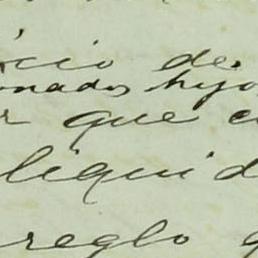 icio de
onados hijo
r que c
liquid
reglo q